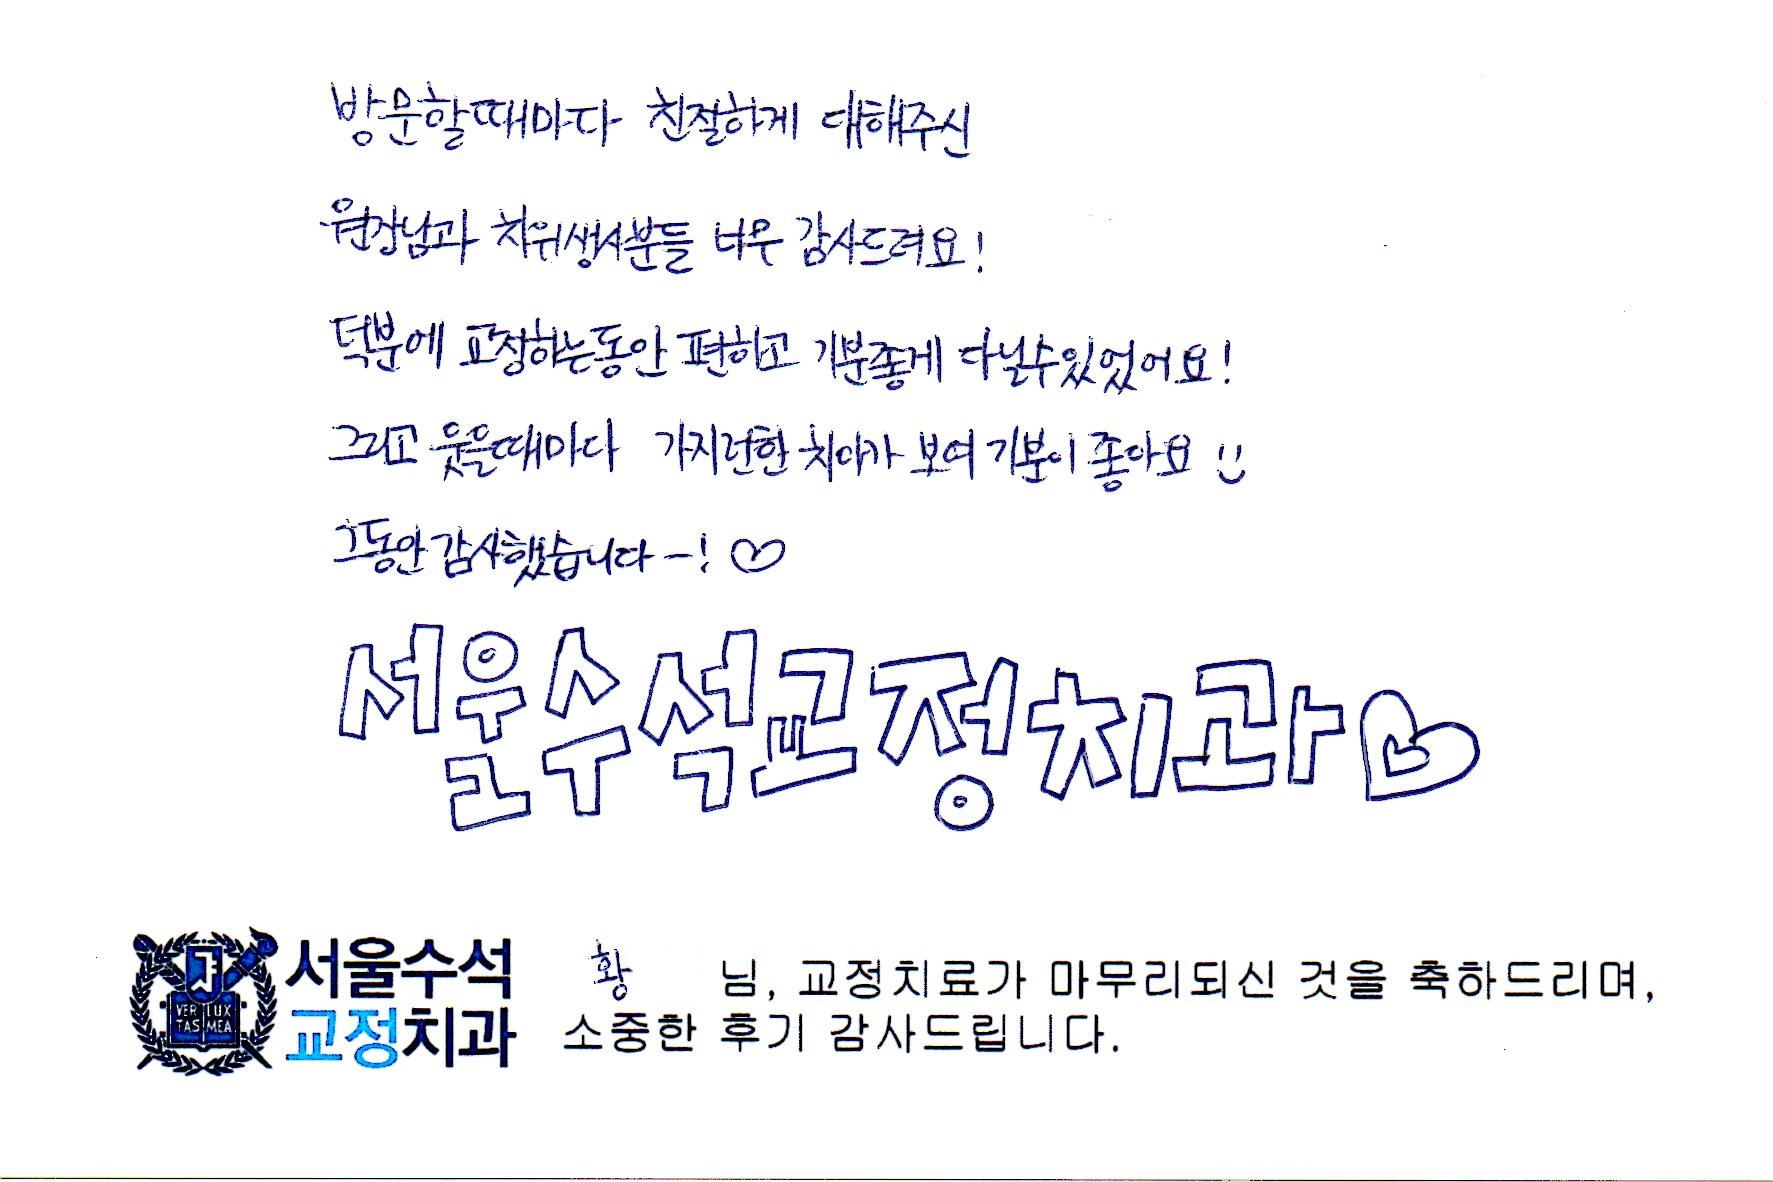 방문할때마다 친절하게 대해주신
원장님과 치위생사분들 너무 감사드려요!
덕분에 교정하는동안 편하고 기분좋게 다닐수있었어요!
그리고 웃을때마다 가지런한 치아가 보여 기분이 좋아요 :)
그동안 감사했습니다~! ♡
서울수석교정치과♡
VERI LUX
TAS MEA
서울수석
교정치과
황 님, 교정치료가 마무리되신 것을 축하드리며,
소중한 후기 감사드립니다.